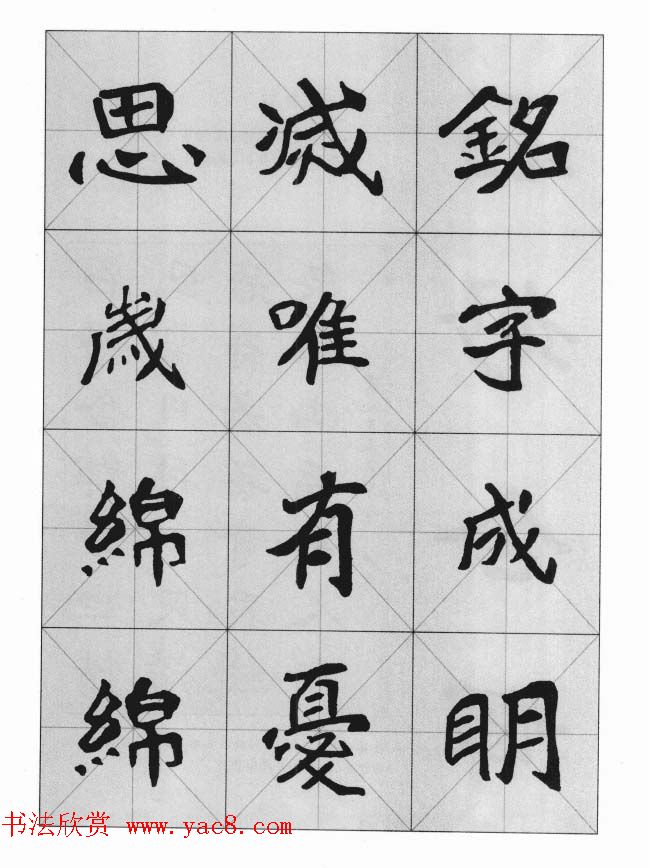 銘字成眀
滅唯有憂
思歲綿綿
书法欣赏 www.yac8.com